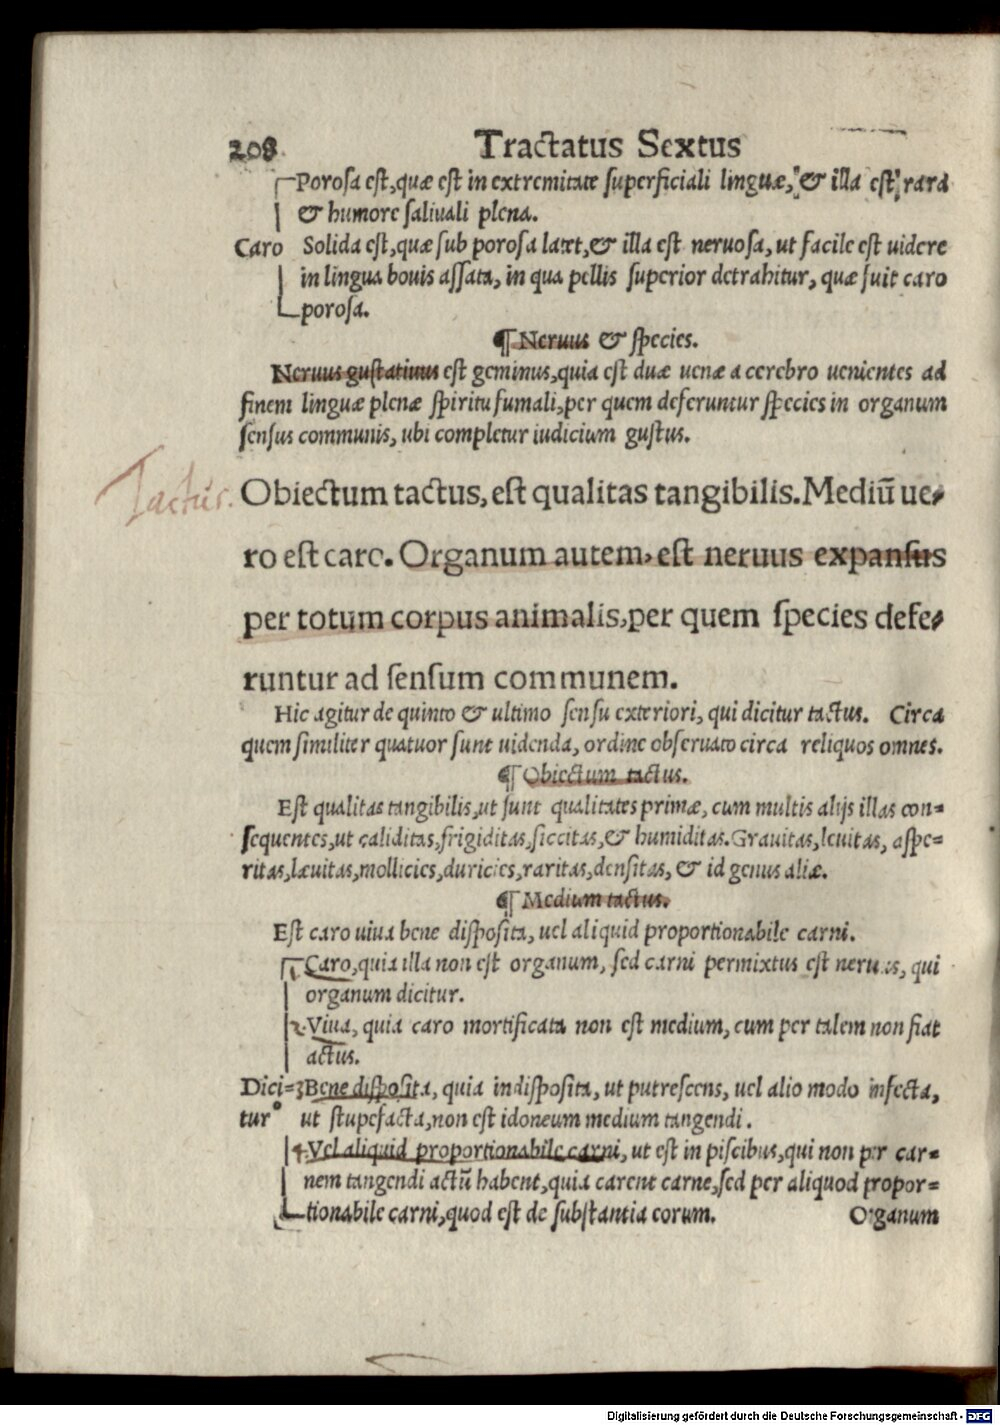 208 Tractatus Sextus
Porosa est, quæ est in extremitate superficiali linguæ, & illa est rara
& humore saliuali plena.
Caro Solida est, quæ sub porosa latet, & illa est neruosa, ut facile est uidere
in lingua bouis assata, in qua pellis superior detrahitur, quæ fuit caro
porosa.
¶ Neruus & species.
Neruus gustatiuus est geminus, quia est duæ uenæ a cerebro uenientes ad
finem linguæ plenæ spiritu fumali, per quem deferuntur species in organum
sensus communis, ubi completur iudicium gustus.
Tactus.
Obiectum tactus, est qualitas tangibilis. Mediū ue⸗
ro est caro. Organum autem, est neruus expansus
per totum corpus animalis, per quem species defe⸗
runtur ad sensum communem.
Hic agitur de quinto & ultimo sensu exteriori, qui dicitur tactus. Circa
quem similiter quatuor sunt uidenda, ordine obseruato circa reliquos omnes.
¶ Obiectum tactus.
Est qualitas tangibilis, ut sunt qualitates primæ, cum multis alijs illas con⸗
sequentes, ut caliditas, frigiditas, siccitas, & humiditas. Grauitas, leuitas, aspe⸗
ritas, læuitas, mollicies, duricies, raritas, densitas, & id genus aliæ.
¶ Medium tactus.
Est caro uiua bene disposita, uel aliquid proportionabile carni.
1 Caro, quia illa non est organum, sed carni permixtus est neruus, qui
organum dicitur.
2 Viua, quia caro mortificata non est medium, cum per talem non fiat
actus.
Dici⸗ 3 Bene disposita, quia indisposita, ut putrescens, uel alio modo infecta,
tur ut stupefacta, non est idoneum medium tangendi.
4 Vel aliquid proportionabile carni, ut est in piscibus, qui non per car⸗
nem tangendi actū habent, quia carent carne, sed per aliquod propor⸗
tionabile carni, quod est de substantia eorum. Organum
Digitalisierung gefördert durch die Deutsche Forschungsgemeinschaft - DFG